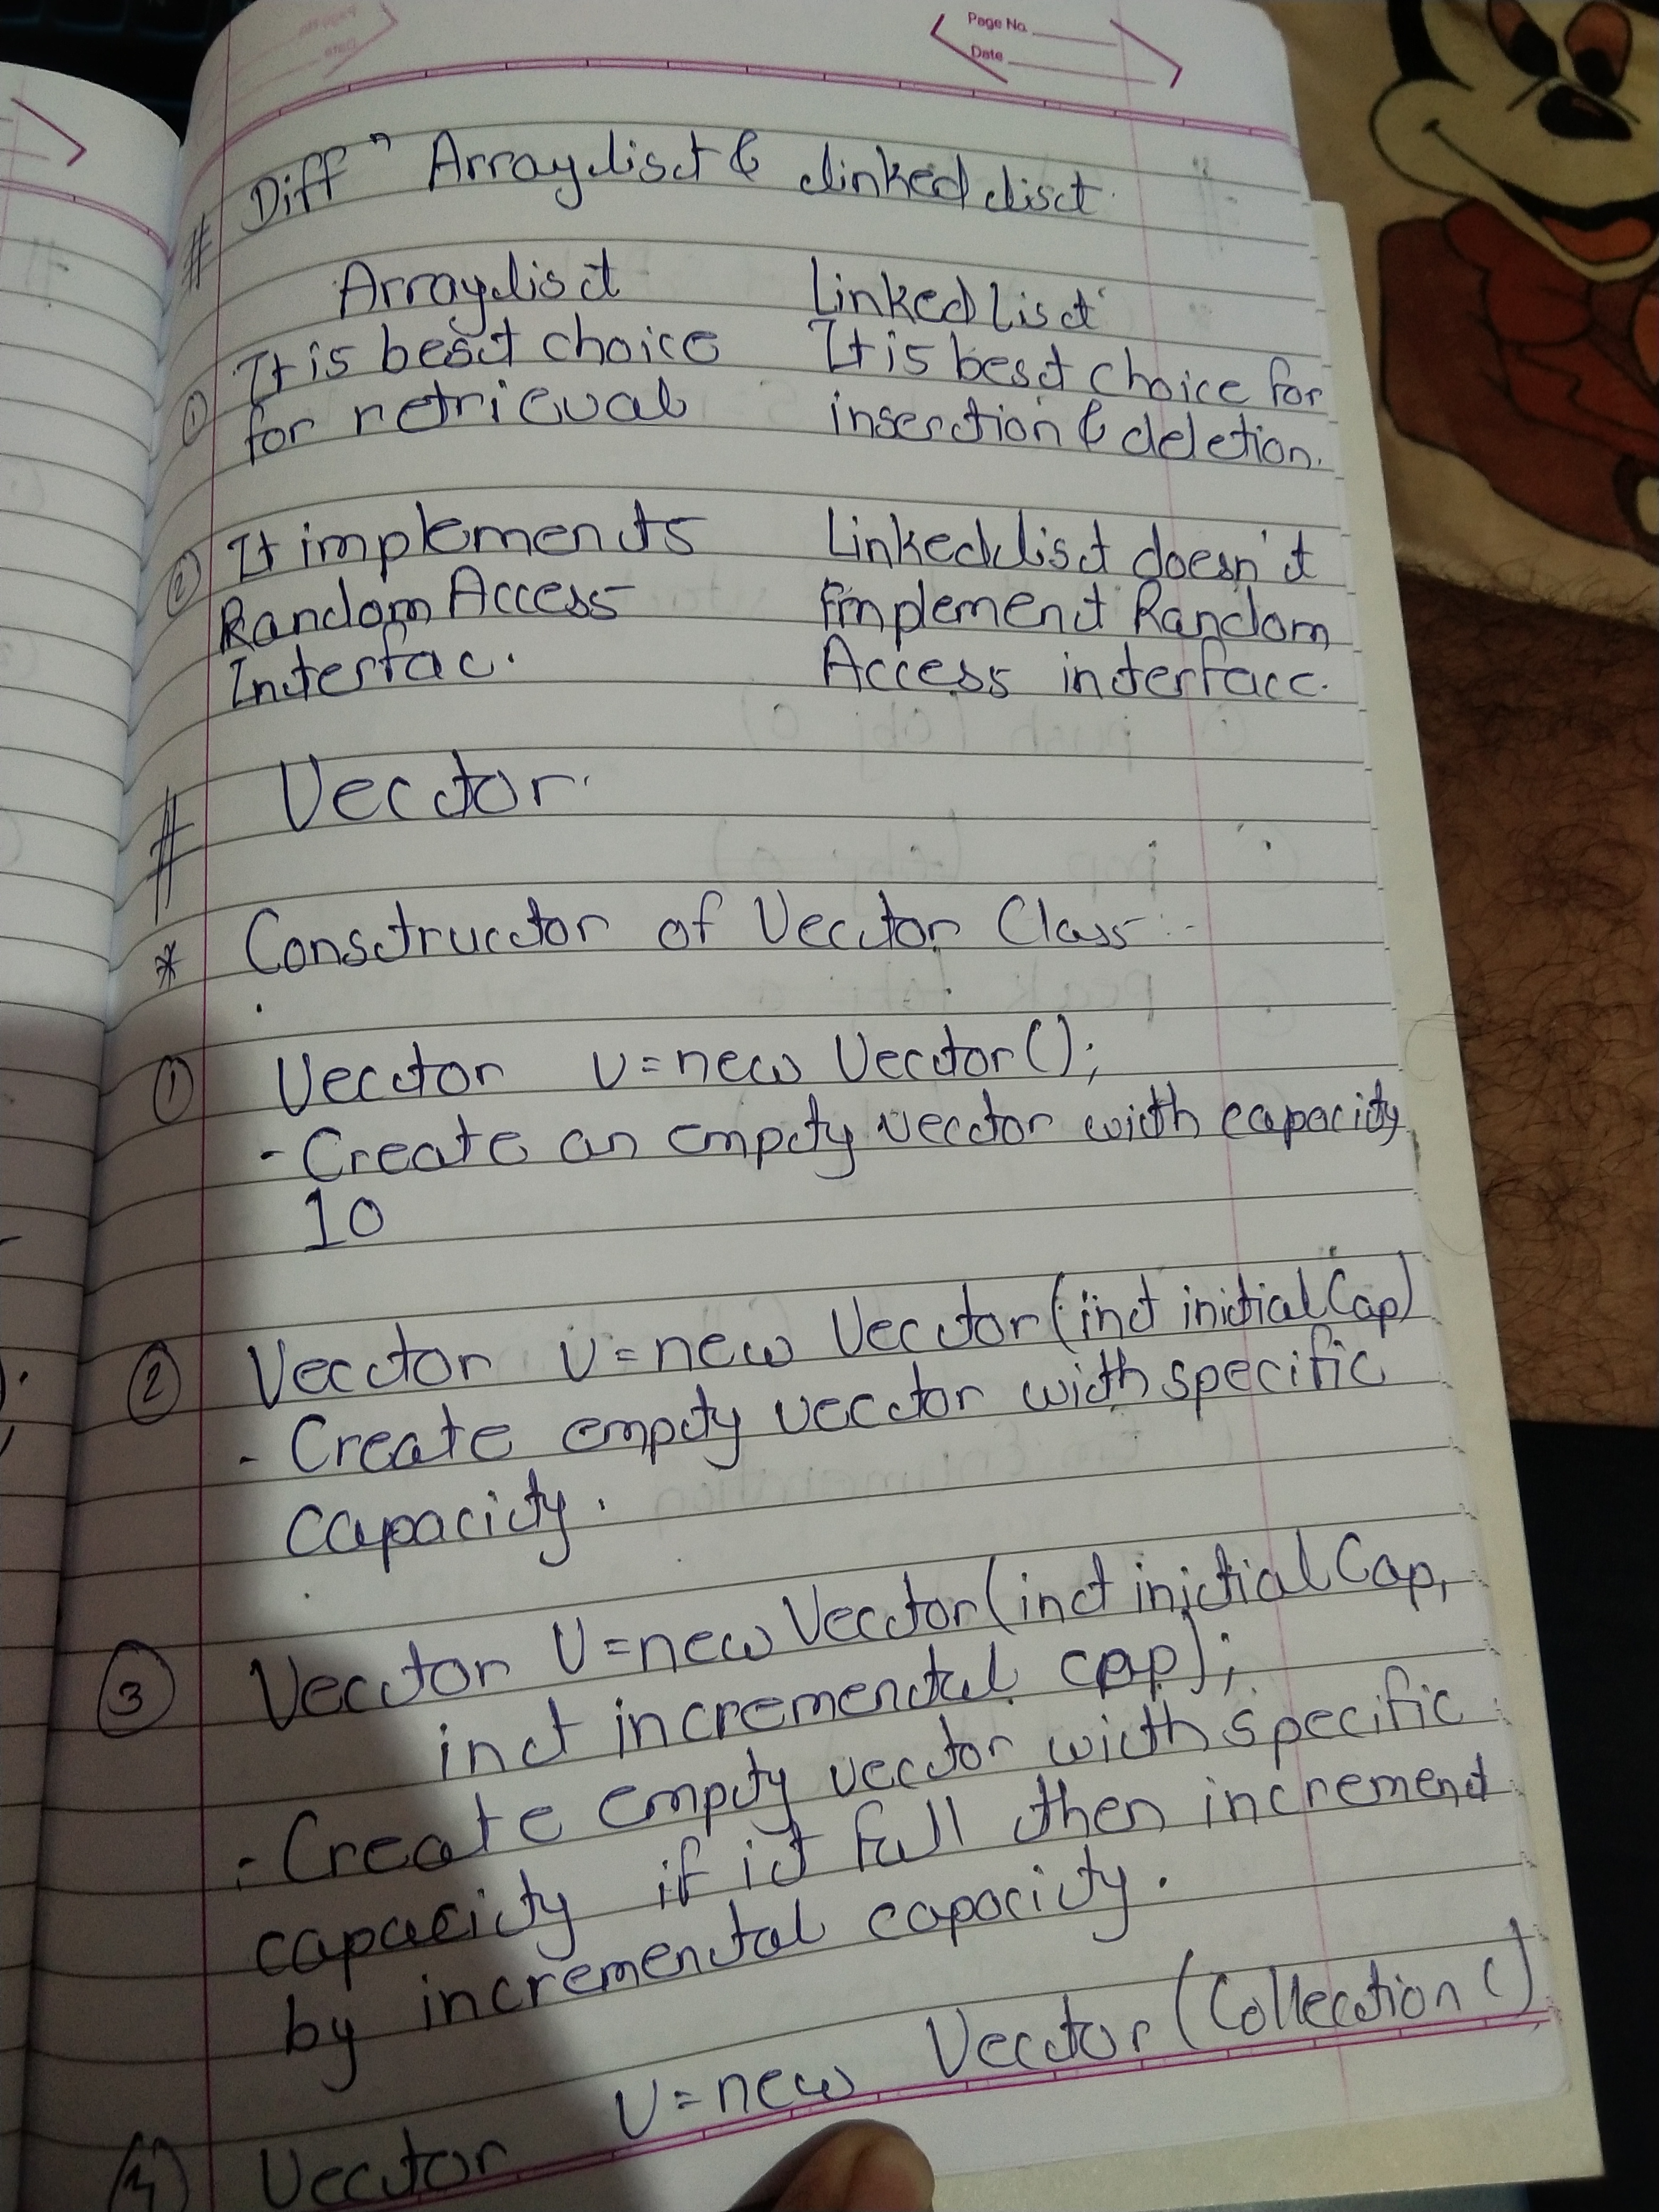 Page No.
Date
# Diff n Arraylist & linked list.
Arraylist LinkedList
① It is best choice It is best choice for
for retrieval insertion & deletion.
② It implements Linkedlist doesn't
Random Access implement Random
Interfac. Access interface.
# Vector.
* Constructor of Vector Class :-
① Vector v=new Vector();
- Create an empty vector with capacity
10
② Vector v=new Vector(int initialCap)
- Create empty vector with specific
capacity.
③ Vector v=new Vector(int initialCap,
int incremental cap);
- Create empty vector with specific
capacity if it full then increment
by incremental capacity.
④ Vector v=new Vector(Collection c)